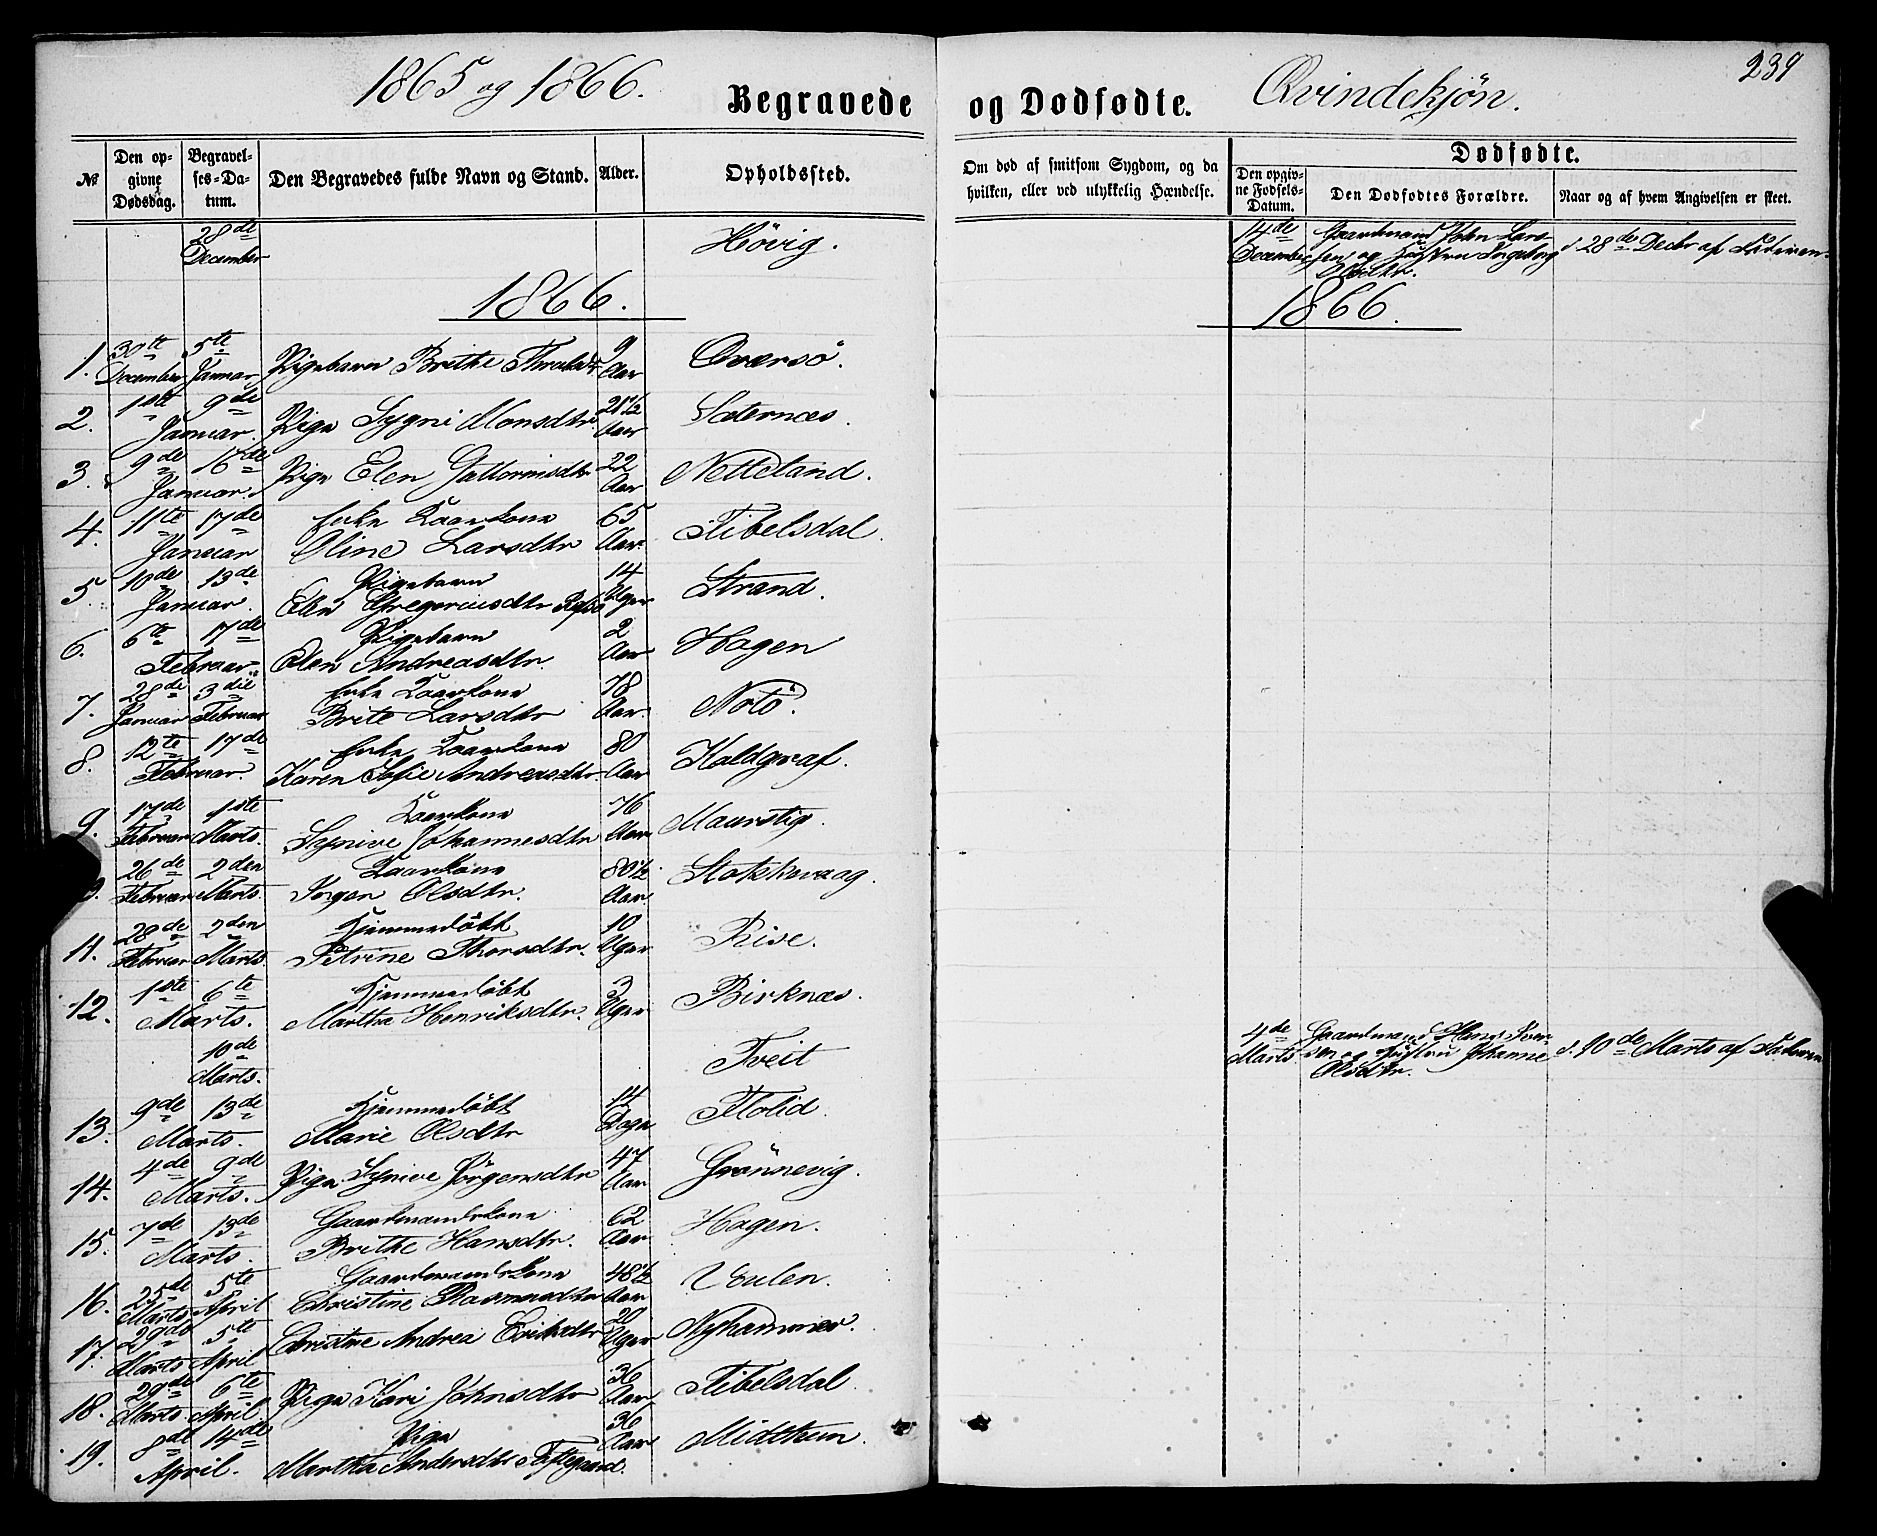 239
1865 og 1866.
Begravede og Dødfødte.
Qvindekjøn.
No
Den opgivne Dødsdag.
Begravelses-Datum.
Den Begravedes fulde Navn og Stand.
Alder.
Opholdssted.
Om død af smitsom Sygdom, og da hvilken, eller ved ulykkelig Hændelse.
Dødfødte.
Den opgivne Fødsels-Datum.
Den Dødfødtes Forældre.
Naar og af hvem Angivelsen er skeet.
28de December Høvig. 14de December Gaardmand John Larssen og Hustru Ingeborg d. 28de Decbr af Faderen.
1866. 1866.
1. 30te December 5te Januar Pigebarn Brithe 9 Aar Oversø.
2. 1ste 9de Januar. Pige Sygni Monsdtr. 21 1/2 Aar Sæternæs.
3. 9de 16de Januar. Pige Elen Guttormsdtr 22 Aar Netteland.
4. 11te 17de Januar Enke Kaarkone Oline Larsdtr 65 Aar. Fibelsdal.
5. 10de 13de Januar. Pigebarn Elen Gregoriusdtr 14 Uger Strand.
6. 6te 17de Februar Pigebarn Elen Andreasdtr. 2 Aar Hagen
7. 28de Januar 3die Februar Enke Kaarkone Brite Larsdtr 78 Aar. Notö.
8. 12te 17de Februar. Enke Kaarkone Karen Sofie Andreasdtr 80 Aar Kaldgraf.
9. 17de Februar 1ste Marts. Kaarkone Synive Johannesdtr 76 Aar Maurstig.
26de Februar 2den Marts. Kaarkone Olsdtr. 80 1/2 Aar. Stokkevaag.
11. 28de Februar 2den Marts. Hjemmedøbt Petrine Thorsdtr. 10 Uger Rise.
12. 1ste 6te Marts. Hjemmedøbt Martha Henriksdtr. 3 Uger Birknæs.
10de Marts. Tveit 4de Marts Gaardmand Hans Iversen og Hustru Johanne Olsdtr. d. 10de Marts af Faderen
13. 9de 13de Marts. Hjemmedøbt Marie Olsdtr 14 Dage Flolid.
14. 4de 9de Marts. Pige Synive Jørgensdtr 47 Aar Grønnevig.
15. 7de 13de Marts. Gaardmandskone Brithe Hansdtr. 62 Aar Hagen.
16. 25de Marts 5te April Gaardmandskone Christine Rasmusdtr 48 1/2 Aar Veulen.
17. 29de Marts 5te April Christine Andrea Eriksdtr 20 Uger Nyhammer.
18. 29de Marts 6te April Pige Kari Johnsdtr 36 Aar Fibelsdal.
19. 8de 14de April. Pige Martha Andersdtr Toftegaard. 36 Aar Midthun.